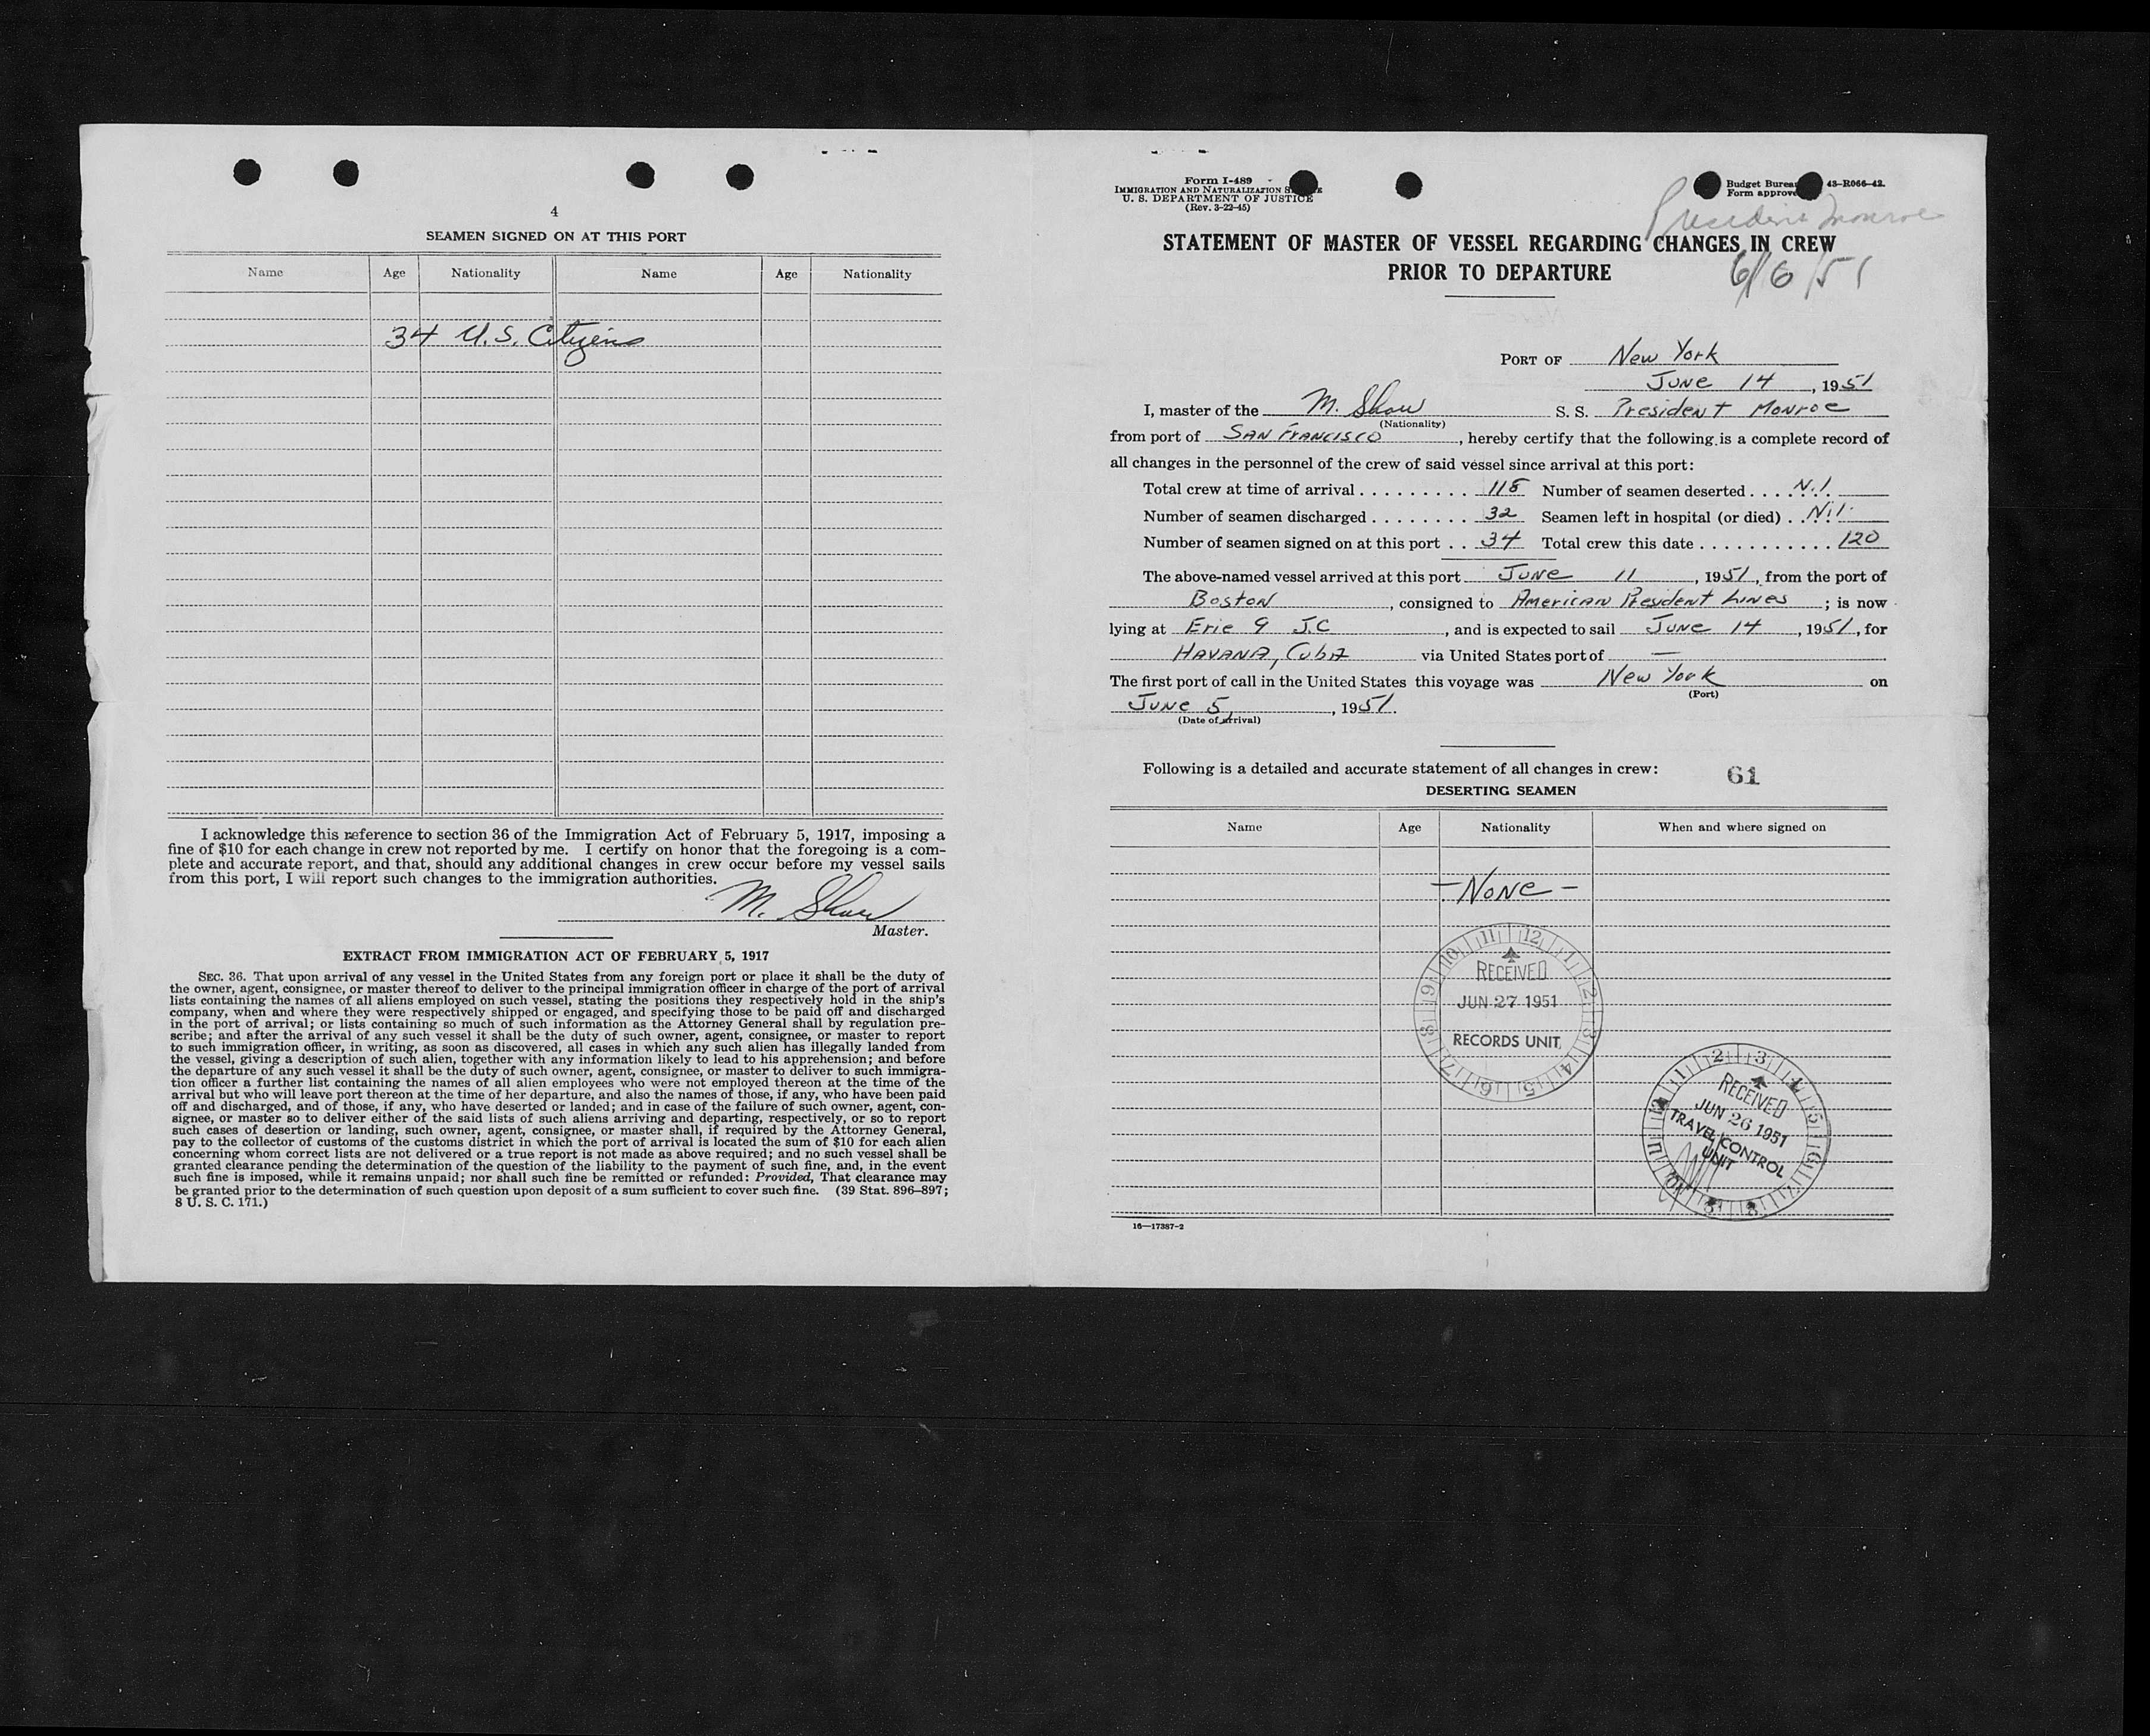 4
SEAMEN SIGNED ON AT THIS PORT
Name Age Nationality Name Age Nationality
34 U.S. Citizens
I acknowledge this reference to section 36 of the Immigration Act of February 5, 1917, imposing a
fine of $10 for each change in crew not reported by me. I certify on honor that the foregoing is a com-
plete and accurate report, and that, should any additional changes in crew occur before my vessel sails
from this port, I will report such changes to the immigration authorities.
M. Shaw
Master.
EXTRACT FROM IMMIGRATION ACT OF FEBRUARY 5, 1917
SEC. 36. That upon arrival of any vessel in the United States from any foreign port or place it shall be the duty of
the owner, agent, consignee, or master thereof to deliver to the principal immigration officer in charge of the port of arrival
lists containing the names of all aliens employed on such vessel, stating the positions they respectively hold in the ship's
company, when and where they were respectively shipped or engaged, and specifying those to be paid off and discharged
in the port of arrival; or lists containing so much of such information as the Attorney General shall by regulation pre-
scribe; and after the arrival of any such vessel it shall be the duty of such owner, agent, consignee, or master to report
to such immigration officer, in writing, as soon as discovered, all cases in which any such alien has illegally landed from
the vessel, giving a description of such alien, together with any information likely to lead to his apprehension; and before
the departure of any such vessel it shall be the duty of such owner, agent, consignee, or master to deliver to such immigra-
tion officer a further list containing the names of all alien employees who were not employed thereon at the time of the
arrival but who will leave port thereon at the time of her departure, and also the names of those, if any, who have been paid
off and discharged, and of those, if any, who have deserted or landed; and in case of the failure of such owner, agent, con-
signee, or master so to deliver either of the said lists of such aliens arriving and departing, respectively, or so to report
such cases of desertion or landing, such owner, agent, consignee, or master shall, if required by the Attorney General,
pay to the collector of customs of the customs district in which the port of arrival is located the sum of $10 for each alien
concerning whom correct lists are not delivered or a true report is not made as above required; and no such vessel shall be
granted clearance pending the determination of the question of the liability to the payment of such fine, and, in the event
such fine is imposed, while it remains unpaid; nor shall such fine be remitted or refunded: Provided, That clearance may
be granted prior to the determination of such question upon deposit of a sum sufficient to cover such fine. (39 Stat. 896–897;
8 U. S. C. 171.)
Form I-489
IMMIGRATION AND NATURALIZATION
U. S. DEPARTMENT OF JUSTICE
(Rev. 3-22-45)
Budget 43-R066-42.
Form
President Monroe
STATEMENT OF MASTER OF VESSEL REGARDING CHANGES IN CREW
PRIOR TO DEPARTURE
6/6/51
PORT OF New York
June 14, 1951
I, master of the M. Shaw S. S. President Monroe
(Nationality)
from port of San Francisco, hereby certify that the following is a complete record of
all changes in the personnel of the crew of said vessel since arrival at this port:
Total crew at time of arrival . . . . . . . . . 118 Number of seamen deserted . . . . Nil
Number of seamen discharged . . . . . . . . 32 Seamen left in hospital (or died) . . Nil
Number of seamen signed on at this port . . 34 Total crew this date . . . . . . . . . . . 120
The above-named vessel arrived at this port June 11, 1951, from the port of
Boston, consigned to American President Lines; is now
lying at Erie 9 J.C, and is expected to sail June 14, 1951, for
Havana, Cuba via United States port of —
The first port of call in the United States this voyage was New York on
(Port)
June 5, 1951.
(Date of arrival)
Following is a detailed and accurate statement of all changes in crew: 61
DESERTING SEAMEN
Name Age Nationality When and where signed on
- None -
RECEIVED
JUN 27 1951
RECORDS UNIT
RECEIVED
JUN 26 1951
TRAVEL CONTROL
UNIT
16—17387-2